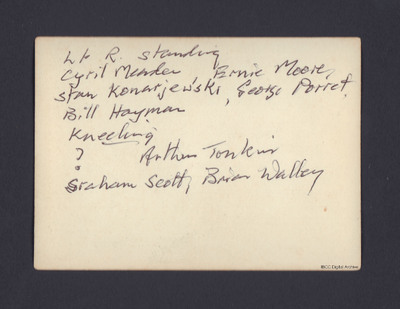 L to R. Standing
Cyril Meader Ernie Moore,
Stan Konarjewski, George Poiret,
Bill Hayman
Kneeling
? Arthur Tonkin
Graham Scott, Brian Walley
©CC Digital Archive